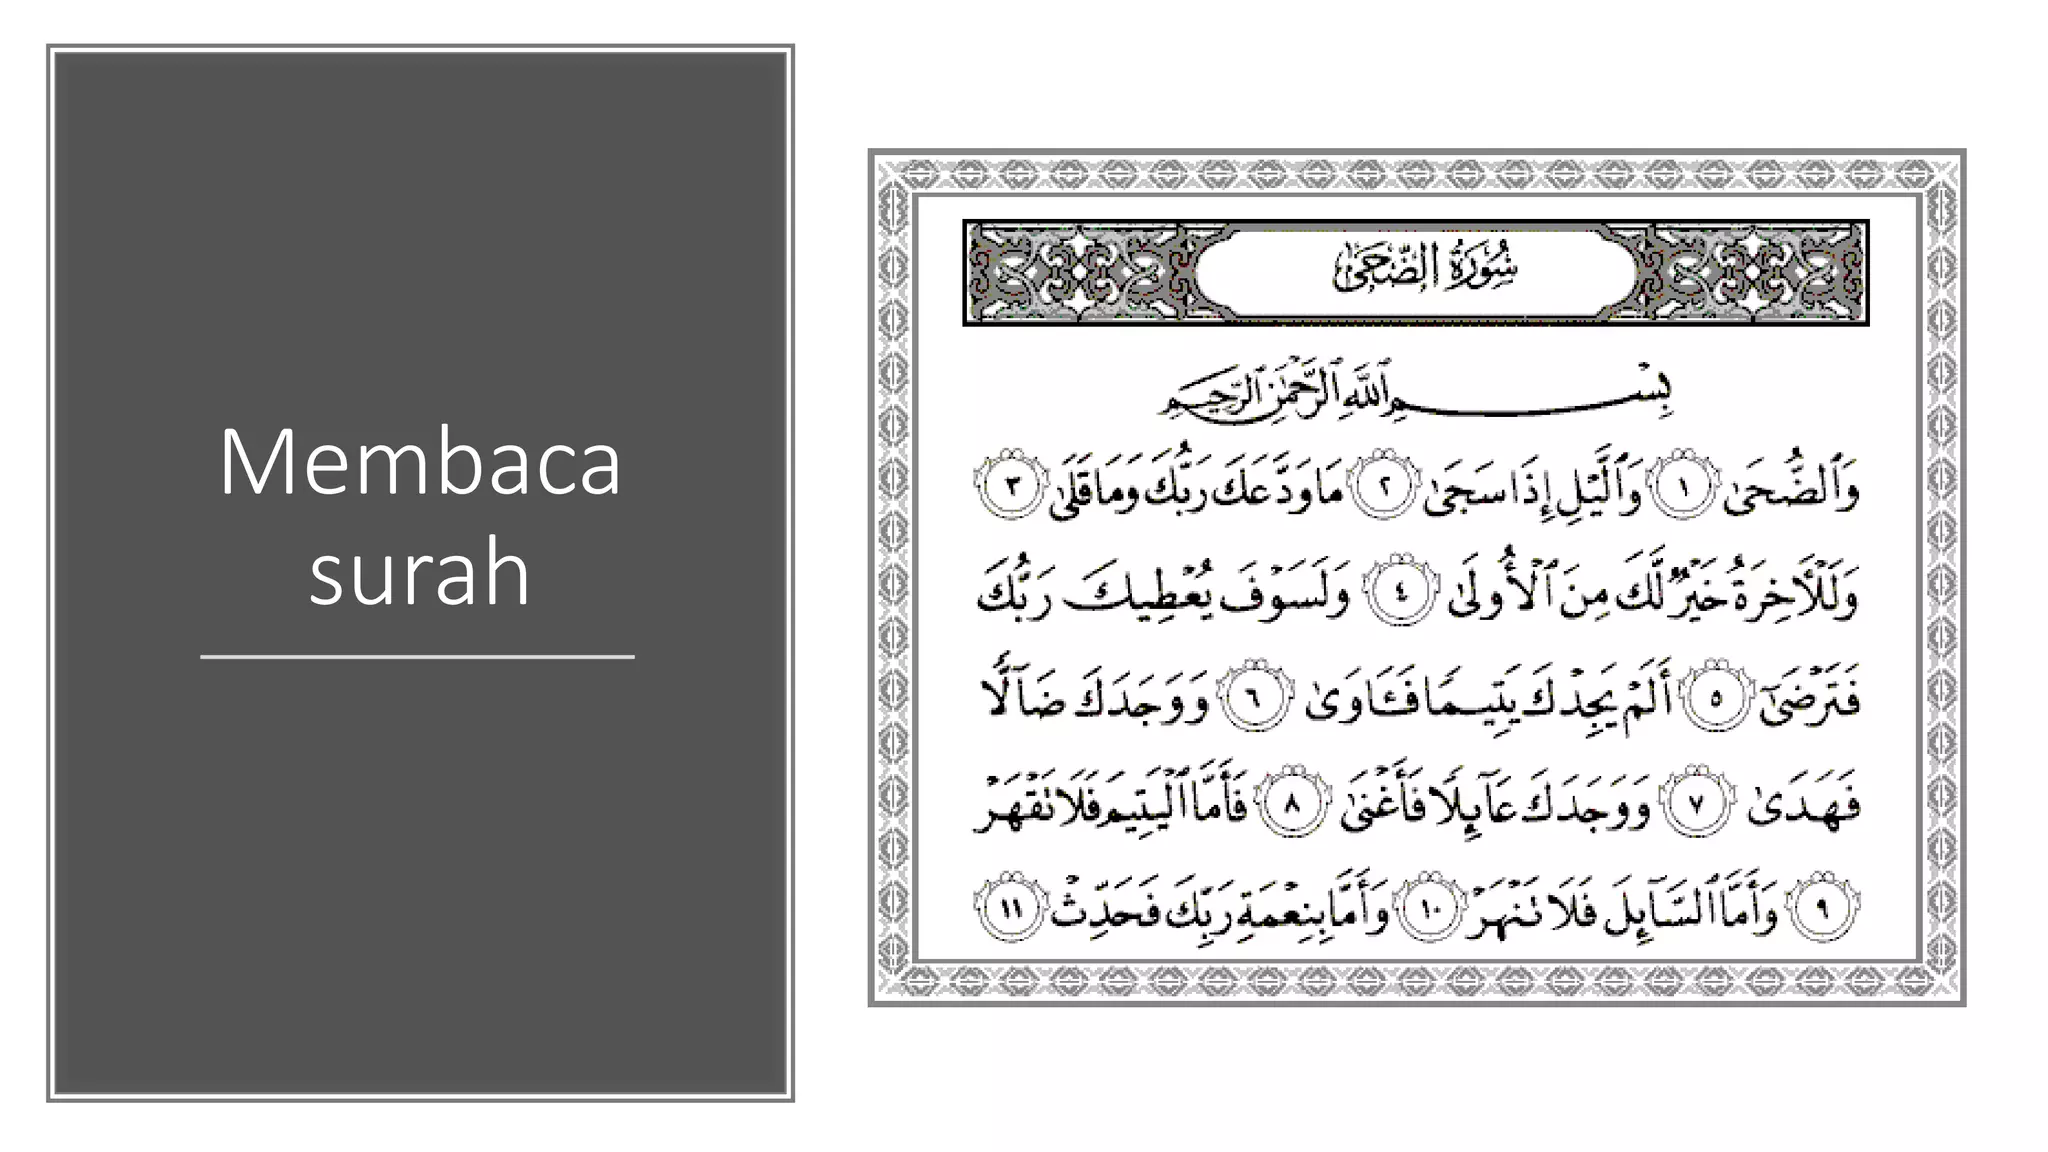 Membaca
surah
سُورَةُ الضُّحَىٰ
بِسْمِ ٱللَّهِ ٱلرَّحْمَٰنِ ٱلرَّحِيمِ
وَٱلضُّحَىٰ ١ وَٱلَّيْلِ إِذَا سَجَىٰ ٢ مَا وَدَّعَكَ رَبُّكَ وَمَا قَلَىٰ ٣
وَلَلْـَٔاخِرَةُ خَيْرٌ لَّكَ مِنَ ٱلْأُولَىٰ ٤ وَلَسَوْفَ يُعْطِيكَ رَبُّكَ
فَتَرْضَىٰٓ ٥ أَلَمْ يَجِدْكَ يَتِيمًا فَـَٔاوَىٰ ٦ وَوَجَدَكَ ضَآلًّا
فَهَدَىٰ ٧ وَوَجَدَكَ عَآئِلًا فَأَغْنَىٰ ٨ فَأَمَّا ٱلْيَتِيمَ فَلَا تَقْهَرْ
٩ وَأَمَّا ٱلسَّآئِلَ فَلَا تَنْهَرْ ١٠ وَأَمَّا بِنِعْمَةِ رَبِّكَ فَحَدِّثْ ١١